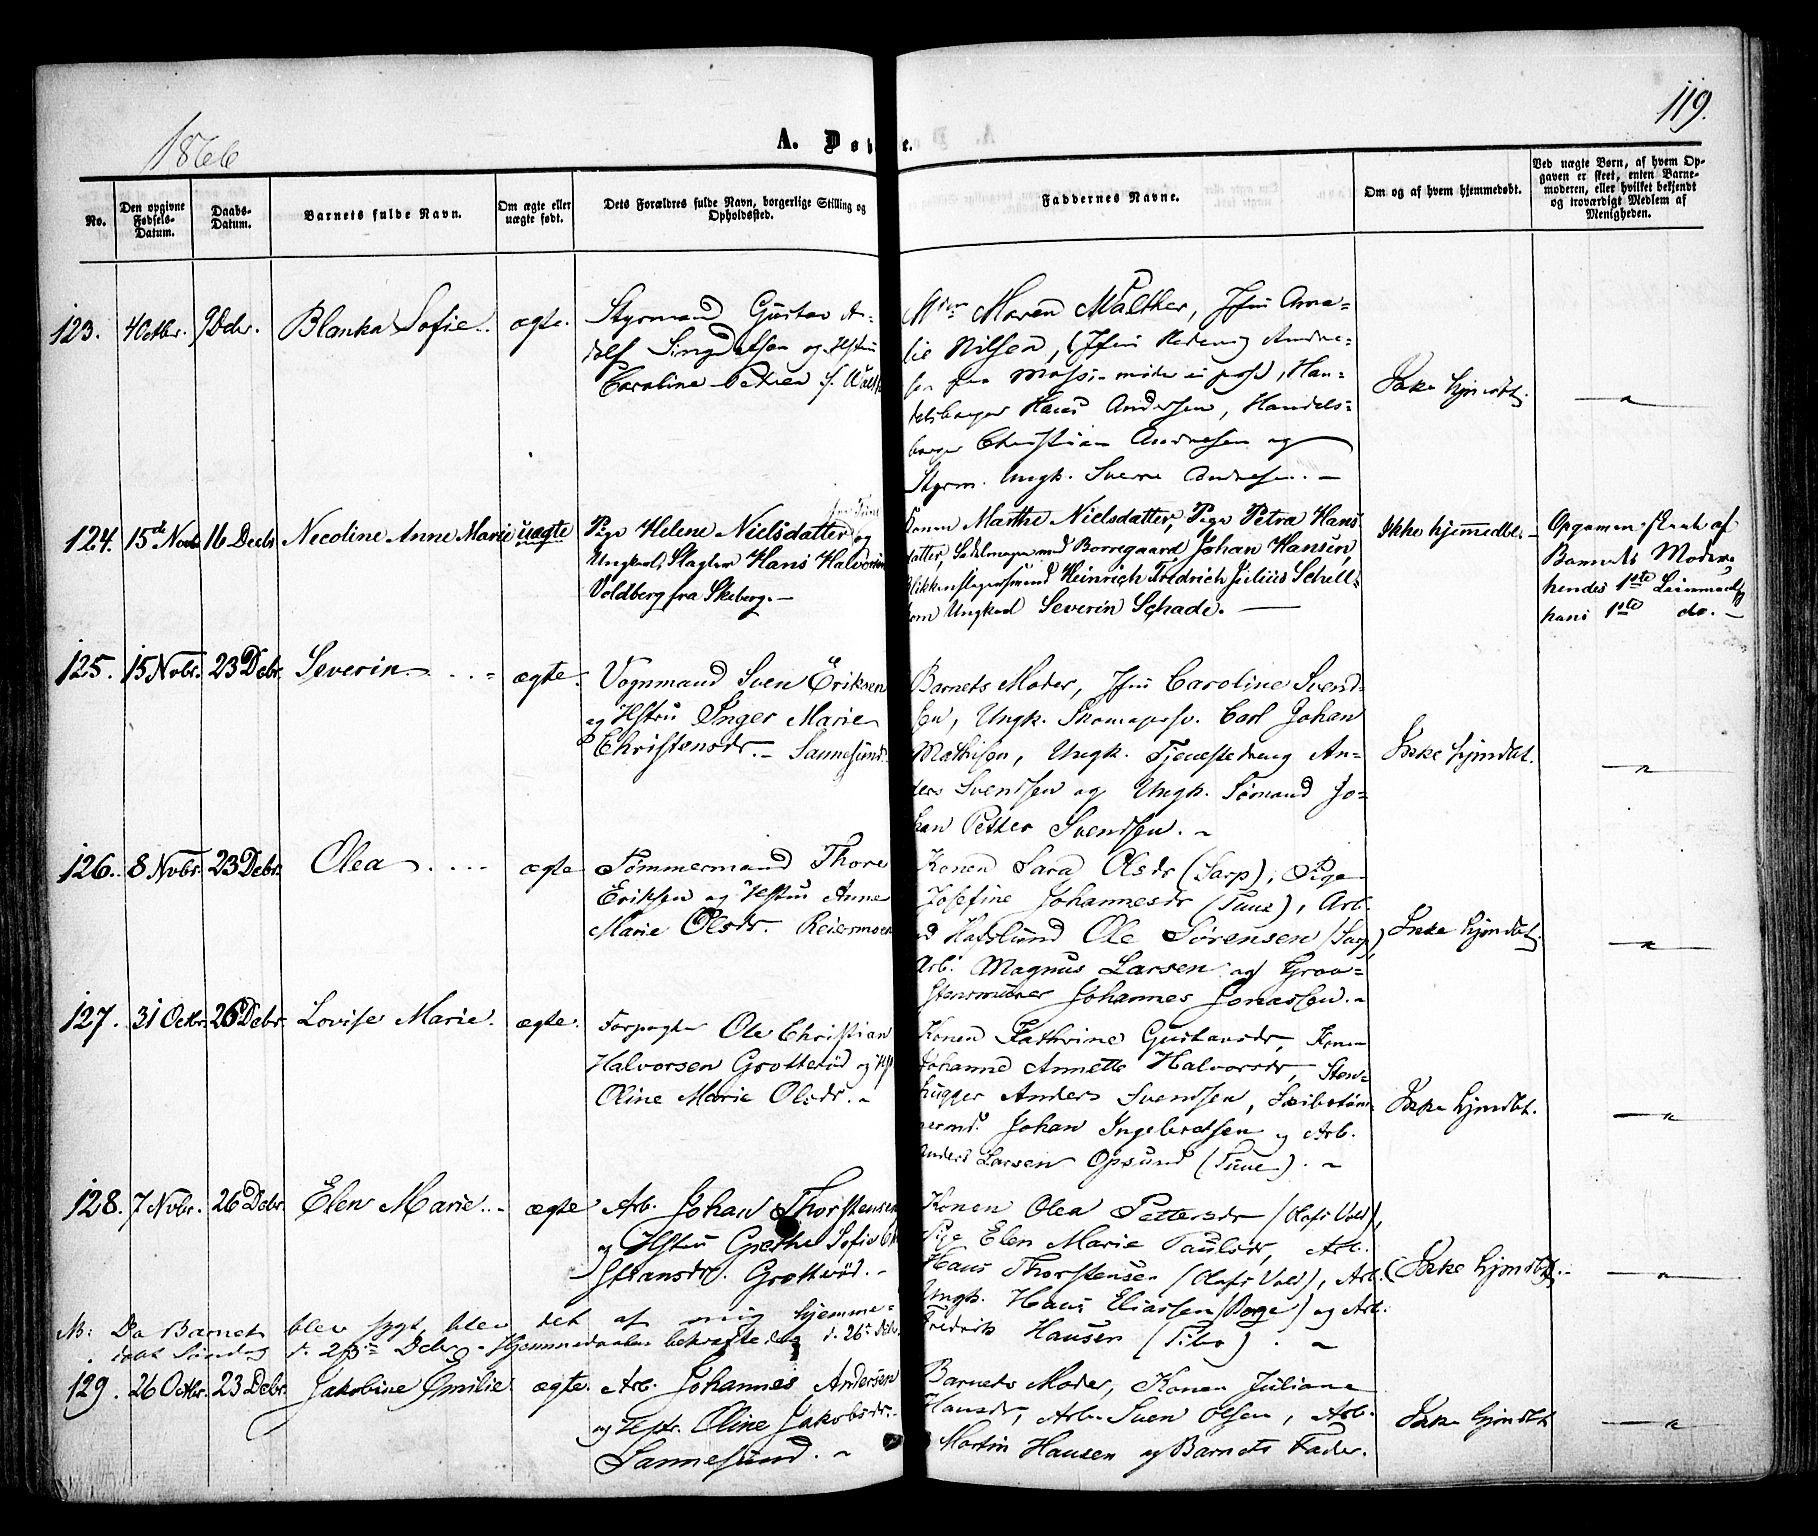 1866
A. Døbte.
119.
No.
Den opgivne Fødsels-Datum.
Daabs-Datum.
Barnets fulde Navn.
Om ægte eller uægte født.
Dets Forældres fulde Navn, borgerlige Stilling og Opholdssted.
Faddernes Navne.
Om og af hvem hjemmedøbt.
Ved uægte Børn, af hvem Opgaven er skeet, enten Barnemoderen, eller hvilket bekjendt og troværdigt Medlem af Menigheden.
123. 4 Octbr. 9 Dcbr. Blanka Sofie. ægte.
Styrmand Gustav A-
dolf og Hstru
Caroline
Maren Malther, Jfru Ama-
lie Nilsen, (Jfru Hedevig Andre-
sen fra Moss - mødte ei pers), Han-
delsborger Hans Andersen, Handels-
borger Christian Andresen og
Styrm. Ungk. Sverre Andresen. -
Ikke hjmdbt.
- " -
124. 15de Novb 16 Decb Necoline Anne Marie uægte
Pige Helene Nielsdatter og
Ungkarl, Slagter Hans Halvorsen
Voldberg fra Skeberg. -
Konen Marthe Nielsdatter, Pige Petra Hans
datter, Sadelmager ved Borregaard Johan Hansen,
Blikkenslagersvend Heinrich Fredrich Julius Schell-
horn Ungkarl Severin Schade. -
Ikke hjemmedbt. -
Opgaven skeet af
Barnets Moder,
hendes 1ste Leiermaal,
hans 1ste do. -
125. 15 Novbr. 23 Debr. Severin. . . - ægte.
Vognmand Sven Eriksen
og Hstru Inger Marie
Christensdr. - Sannesund.
Barnets Moder, Jfru Caroline Svend-
sen, Ungk. Carl Johan
Mathisen, Ungk. Tjenestedreng An-
ders Svendsen og Ungk. Sømand Jo-
han Petter Svendsen. -
Ikke hjmdbt.
- " -
126. 8 Novbr. 23 Debr. Olea . . . ægte
Tømmermand Thore
Eriksen og Hstru Anne
Marie Olsdr. Reiersmoen
Konen Sara Olsdr (Sarp), Pige
Josefine Johannesdr (Tune), Arb.
Hafslund Ole Sørensen (Sarp)
Arb. Magnus Larsen og Graa-
stensmurer Johannes Jonassen. -
Ikke hjmdbt.
- " -
127. 31 Octbr. 26 Debr. Lovise Marie. ægte.
Forpagter Ole Christian
Halvorsen Grotterød og H
Oline Marie Olsdr. -
Konen Kathrine Gustavsdr, Kone
Johanne Annette Halvorsdr, Sten-
hugger Anders Svendsen, Skibstøm-
mermd. Johan Ingebretsen og Arb.
Anders Larsen Opsund (Tune). -
Ikke hjmdbt.
- " -
128. 7 Novbr. 26 Debr. Elen Marie. . - ægte
Arb. Johan Thorstensen
og Hstru Grethe Sofie
Grotterød. -
Konen Olea Pettersdr (Olafs Vold),
Pige Elen Marie Paulsdr, Arb.
Hans Thorstensen (Olafs Vold), Arb.
Ungk. Hans Eliassen (Borge) og Arb.
Fredrik Hansen (Tibo). -
(Ikke hjmdbt). -
- " -
NB: Da Barnet blev sygt, blev det af mig hjemme-
døbt Søndag d. 23de Debr - Hjemmedaaben bekræftedes d. 26de Debr.
129. 26 Octbr. 23 Debr. Jakobine Emilie ægte.
Arb. Johannes Andersen
og Hstr. Oline Jakobsdr. -
Sannesund. -
Barnets Moder, Konen Juliane
Hansdr, Arb. Sven Olsen, Arb.
Martin Hansen og Barnets Fader.
Ikke hjmdbt
- " -